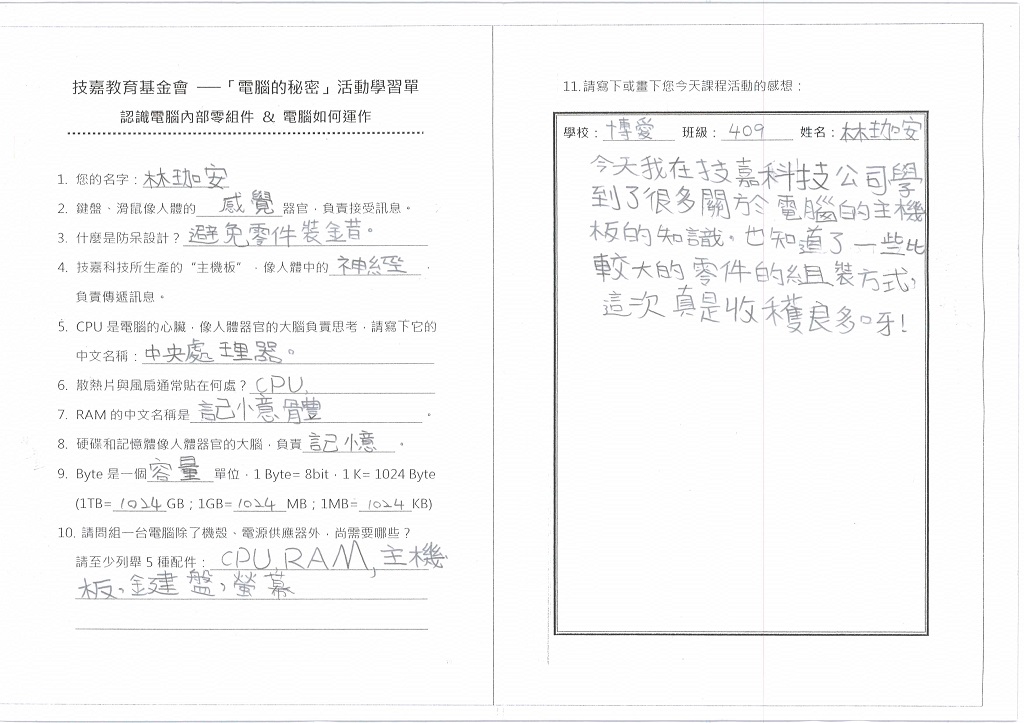 技嘉教育基金會 ──「電腦的秘密」活動學習單
認識電腦內部零組件 & 電腦如何運作
1. 您的名字：林珈安
2. 鍵盤、滑鼠像人體的感覺器官，負責接受訊息。
3. 什麼是防呆設計？避免零件裝錯。
4. 技嘉科技所生產的“主機板”，像人體中的神經，
負責傳遞訊息。
5. CPU 是電腦的心臟，像人體器官的大腦負責思考，請寫下它的
中文名稱：中央處理器。
6. 散熱片與風扇通常貼在何處？CPU.
7. RAM 的中文名稱是記憶體。
8. 硬碟和記憶體像人體器官的大腦，負責記憶。
9. Byte 是一個容量單位，1 Byte= 8bit，1 K= 1024 Byte
(1TB= 1024 GB；1GB= 1024 MB；1MB= 1024 KB)
10. 請問組一台電腦除了機殼、電源供應器外，尚需要哪些？
請至少列舉 5 種配件：CPU,RAM,主機
板，鍵盤，螢幕
11.請寫下或畫下您今天課程活動的感想：
學校：博愛 班級：409 姓名：林珈安
今天我在技嘉科技公司學
到了很多關於電腦的主機
板的知識，也知道了一些比
較大的零件的組裝方式，
這次真是收穫良多呀！